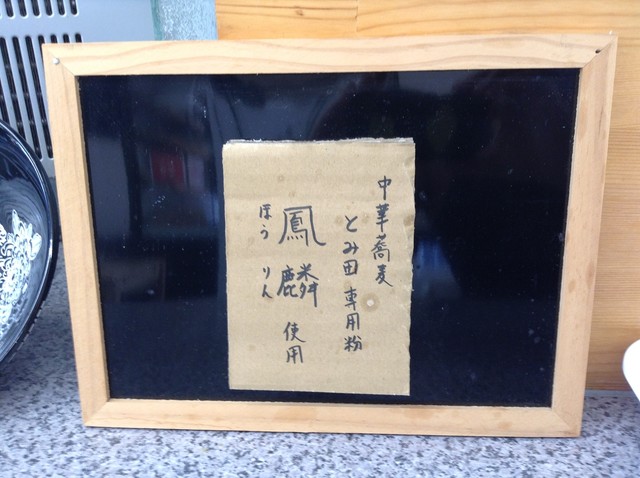 中華蕎麦
とみ田 専用粉
鳳麟 使用
ほうりん